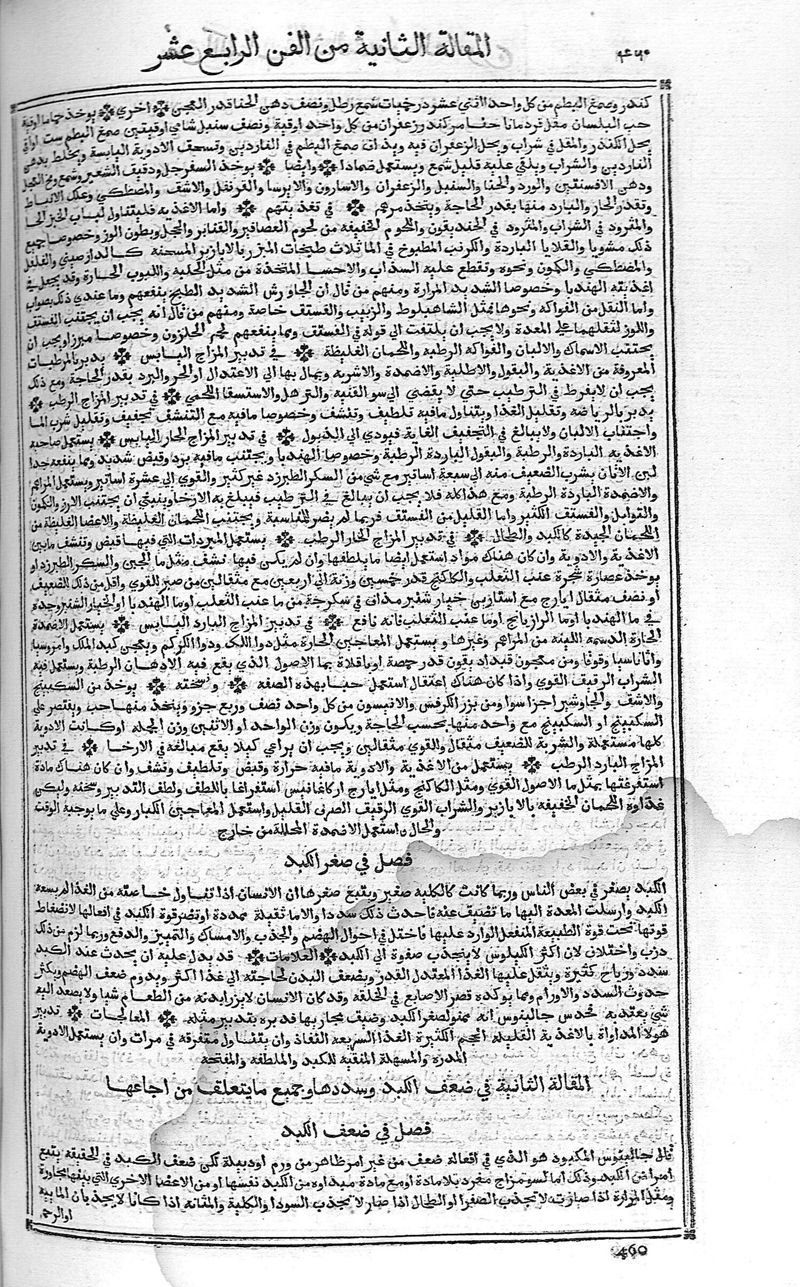 المقالة الثانية من الفن الرابع عشر
٤٦٠
كندر وصمغ البطم من كل واحد اثني عشر درخميات شمع رطل ونصف دهن الحنا قدر العجن اخري يوخذ حماما اوقية
حب البلسان مقل قردمانا حنا مر كندر زعفران من كل واحد اوقية ونصف سنبل شامي اوقيتين صمغ البطم ست اواقي
يحل الكندر والمقل في شراب ويحل الزعفران فيه ويذاب صمغ البطم في الناردين وتسحق الادوية اليابسة ويخلط بدهن
الناردين والشراب ويلقي عليه قليل شمع ويستعمل ضمادا وايضا يوخذ السفرجل ودقيق الشعير وشمع ومخ العجل
ودهن الافسنتين والورد والحنا والسنبل والزعفران والاسارون والايرسا والقرنفل والاشق والمصطكي وعلك الانباط
وتقدر الحار والبارد منها بقدر الحاجة ويتخذ مرهم في تغذيتهم واما الاغذيه فليتناول لباب الخبز الحار
والمثرود في الشراب والمثرود في الخنديقون واللحوم الخفيفه من لحوم العصافير والقنابر والحجل وبطون الوز وخصوصا جميع
ذلك مشويا والقلايا الباردة والكرنب المطبوخ في الما ثلاث طبخات المبزر بالابازير المسخنه كالدارصيني والفلفل
والمصطكي والكمون ونحوه وتقطع عليه السذاب والاحسا المتخذة من مثل الحلبه واللبوب الحارة وقد يجعل في
اغذيته الهندبا وخصوصا الشديد المرارة ومنهم من قال ان الجاورش الشديد الطبخ ينفعهم وما عندي ذلك بصواب
واما النقل من الفواكه ونحوها فمثل الشاهبلوط والزبيب والفستق خاصة ومنهم من قال انه يجب ان يجتنب الفستق
واللوز لثقلهما علي المعدة ولا يجب ان يلتفت الي قوله في الفستق ومما ينفعهم لحم الحلزون وخصوصا مبزرا ويجب ان
يجتنب الاسماك والالبان والفواكه الرطبه واللحمان الغليظة في تدبير المزاج اليابس يدبر بالمرطبات
المعروفة من الاغذية والبقول والاطلية والاضمدة والاشربه ويمال بها الي الاعتدال او الحر والبرد بقدر الحاجة ومع ذلك
يجب ان لا يفرط في الترطيب حتي لا يفضي الي سو القنيه والترهل والاستسقا اللحمي في تدبير المزاج الرطب
يدبر بالرياضه وتقليل الغذا ويتناول ما فيه تلطيف وتنشف وخصوصا ما فيه مع التنشف تجفيف وتقليل شرب الما
واجتناب الالبان ولا يبالغ في التجفيف الغاية فيودي الي الذبول في تدبير المزاج الحار اليابس يستعمل صاحبه
الاغذيه الباردة والرطبة والبقول الباردة الرطبة وخصوصا الهندبا ويجتنب ما فيه برد وقبض شديد ومما ينفعه جدا
لبن الاتان يشرب الضعيف منه الي سبعة اساتير مع شي من السكر الطبرزد غير كثير والقوي الي عشرة اساتير ويستعمل المراهم
والاضمدة الباردة الرطبة ومع هذا كله فلا يجب ان يبالغ في الترطيب فيبلغ به الارخا وينبغي ان يجتنب الارز والكمون
والتوابل والفستق الكثير واما القليل من الفستق فربما لم يضر للمناسبة ويجتنب اللحمان الغليظة والاعضا الغليظة من
اللحمان الجيدة كالكبد والطحال في تدبير المزاج الحار الرطب يستعمل المبردات التي فيها قبض وتنشف ما بين
الاغذية والادوية وان كان هناك مواد استعمل ايضا ما يلطفها وان لم يكن فيها نشف مثل ما الجبن والسكر الطبرزد او
يوخذ عصارة شجرة عنب الثعلب والكاكنج قدر خمسين وزنة الي اربعين مع مثقالين من صبر للقوي واقل من ذلك للضعيف
او نصف مثقال ايارج مع استارين خيار شنبر مداف في سكرجة من ما عنب الثعلب او ما الهندبا او الخيار الشنبر وحده
في ما الهندبا او ما الرازيانج او ما عنب الثعلب فانه نافع في تدبير المزاج البارد اليابس يستعمل الاضمدة
الحارة الدسمه اللينه من المراهم وغيرها ويستعمل المعاجين الحارة مثل دوا اللك ودوا الكركم ومعجون كبد الملك وامروسيا
واثاناسيا وقوفا ومن معجون قنداديقون قدر حمصة او باقلاة بما الاصول الذي يقع فيه الادهان الرطبة ويستعمل فيه
الشراب الرقيق القوي واذا كان هناك اعتقال استعمل حبا بهذه الصفه ونسخته يوخذ من السكبينج
والاشق والجاوشير اجزا سوا ومن بزر الكرفس والانيسون من كل واحد نصف وربع جزو ويتخذ منها حب ويقتصر علي
السكبينج او السكبينج مع واحد منها بحسب الحاجة ويكون وزن الواحد او الاثنين وزن الجمله او كانت الادوية
كلها مستعملة والشربة للضعيف مثقال وللقوي مثقالين ويجب ان يراعي كيلا يقع مبالغه في الارخا في تدبير
المزاج البارد الرطب يستعمل من الاغذية والادوية ما فيه حرارة وقبض وتلطيف ونشف وان كان هناك مادة
استفرغتها بمثل ما الاصول القوي ومثل الكاكنج ومثل ايارج اركاغانيس استفراغا باللطف ولطف التدبير وسخنه وليكن
غذاوه اللحمان الخفيفه بالابازير والشراب القوي الرقيق الصرف القليل واستعمل المعاجين الكبار وعلي ما يوجبه الوقت
والحال واستعمل الاضمدة المحللة من خارج
فصل في صغر الكبد
الكبد يصغر في بعض الناس وربما كانت كالكلية صغير ويتبع صغرها ان الانسان اذا تناول حاجته من الغذا لم يسعه
الكبد وارسلت المعدة اليها ما تضيق عنه فاحدث ذلك سددا والاما ثقيلة ممددة وتضر قوة الكبد في افعالها لانضغاط
قوتها تحت قوة الطبيعة المنفعل الوارد عليها فاختل في احوال الهضم والجذب والامساك والتمييز والدفع وربما لزم من ذلك
ذرب واختلاف لان اكثر الكيلوس لا ينجذب صفوة الي الكبد العلامات قد يدل عليه ان يحدث عند الكبد
سدد ورياح كثيرة ويثقل عليها الغذا المعتدل القدر ويضعف البدن لحاجته الي غذا اكثر ويدوم ضعف الهضم ويكثر
حدوث السدد والاورام ومما يوكده قصر الاصابع في الخلقه وقد كان الانسان لا يزر ابدنه من الطعام شيا ولا يصعد اليه
شي يعتد به فحدس جالينوس انه ممنو لصغر الكبد وضيق مجاريها فدبره بتدبير مثله المعالجات تدبير
هولا المداواة بالاغذية القليله الحجم الكثيرة الغذا السريعه النفاذ وان يتناول متفرقه في مرات وان يستعمل الادوية
المدره والمسهلة المنقيه للكبد والملطفه والمفتحة
المقالة الثانية في ضعف الكبد وسددها وجميع ما يتعلق من اجاعها
فصل في ضعف الكبد
قال جالينوس المكبود هو الذي في افعالة ضعف من غير امر ظاهر من ورم او دبيلة لكن ضعف الكبد في الحقيقه يتبع
امراض الكبد وذلك اما لسو مزاج مفرد بلا مادة او مع مادة مبداوه من الكبد نفسها او من الاعضا الاخري التي بينها مجاورة
ومثل المرارة اذا صارت لا يجذب الصفرا او الطحال اذا صار لا يجذب السودا والكلية والمثانه اذا كانا لا يجذبان المابية
او الرحم
460